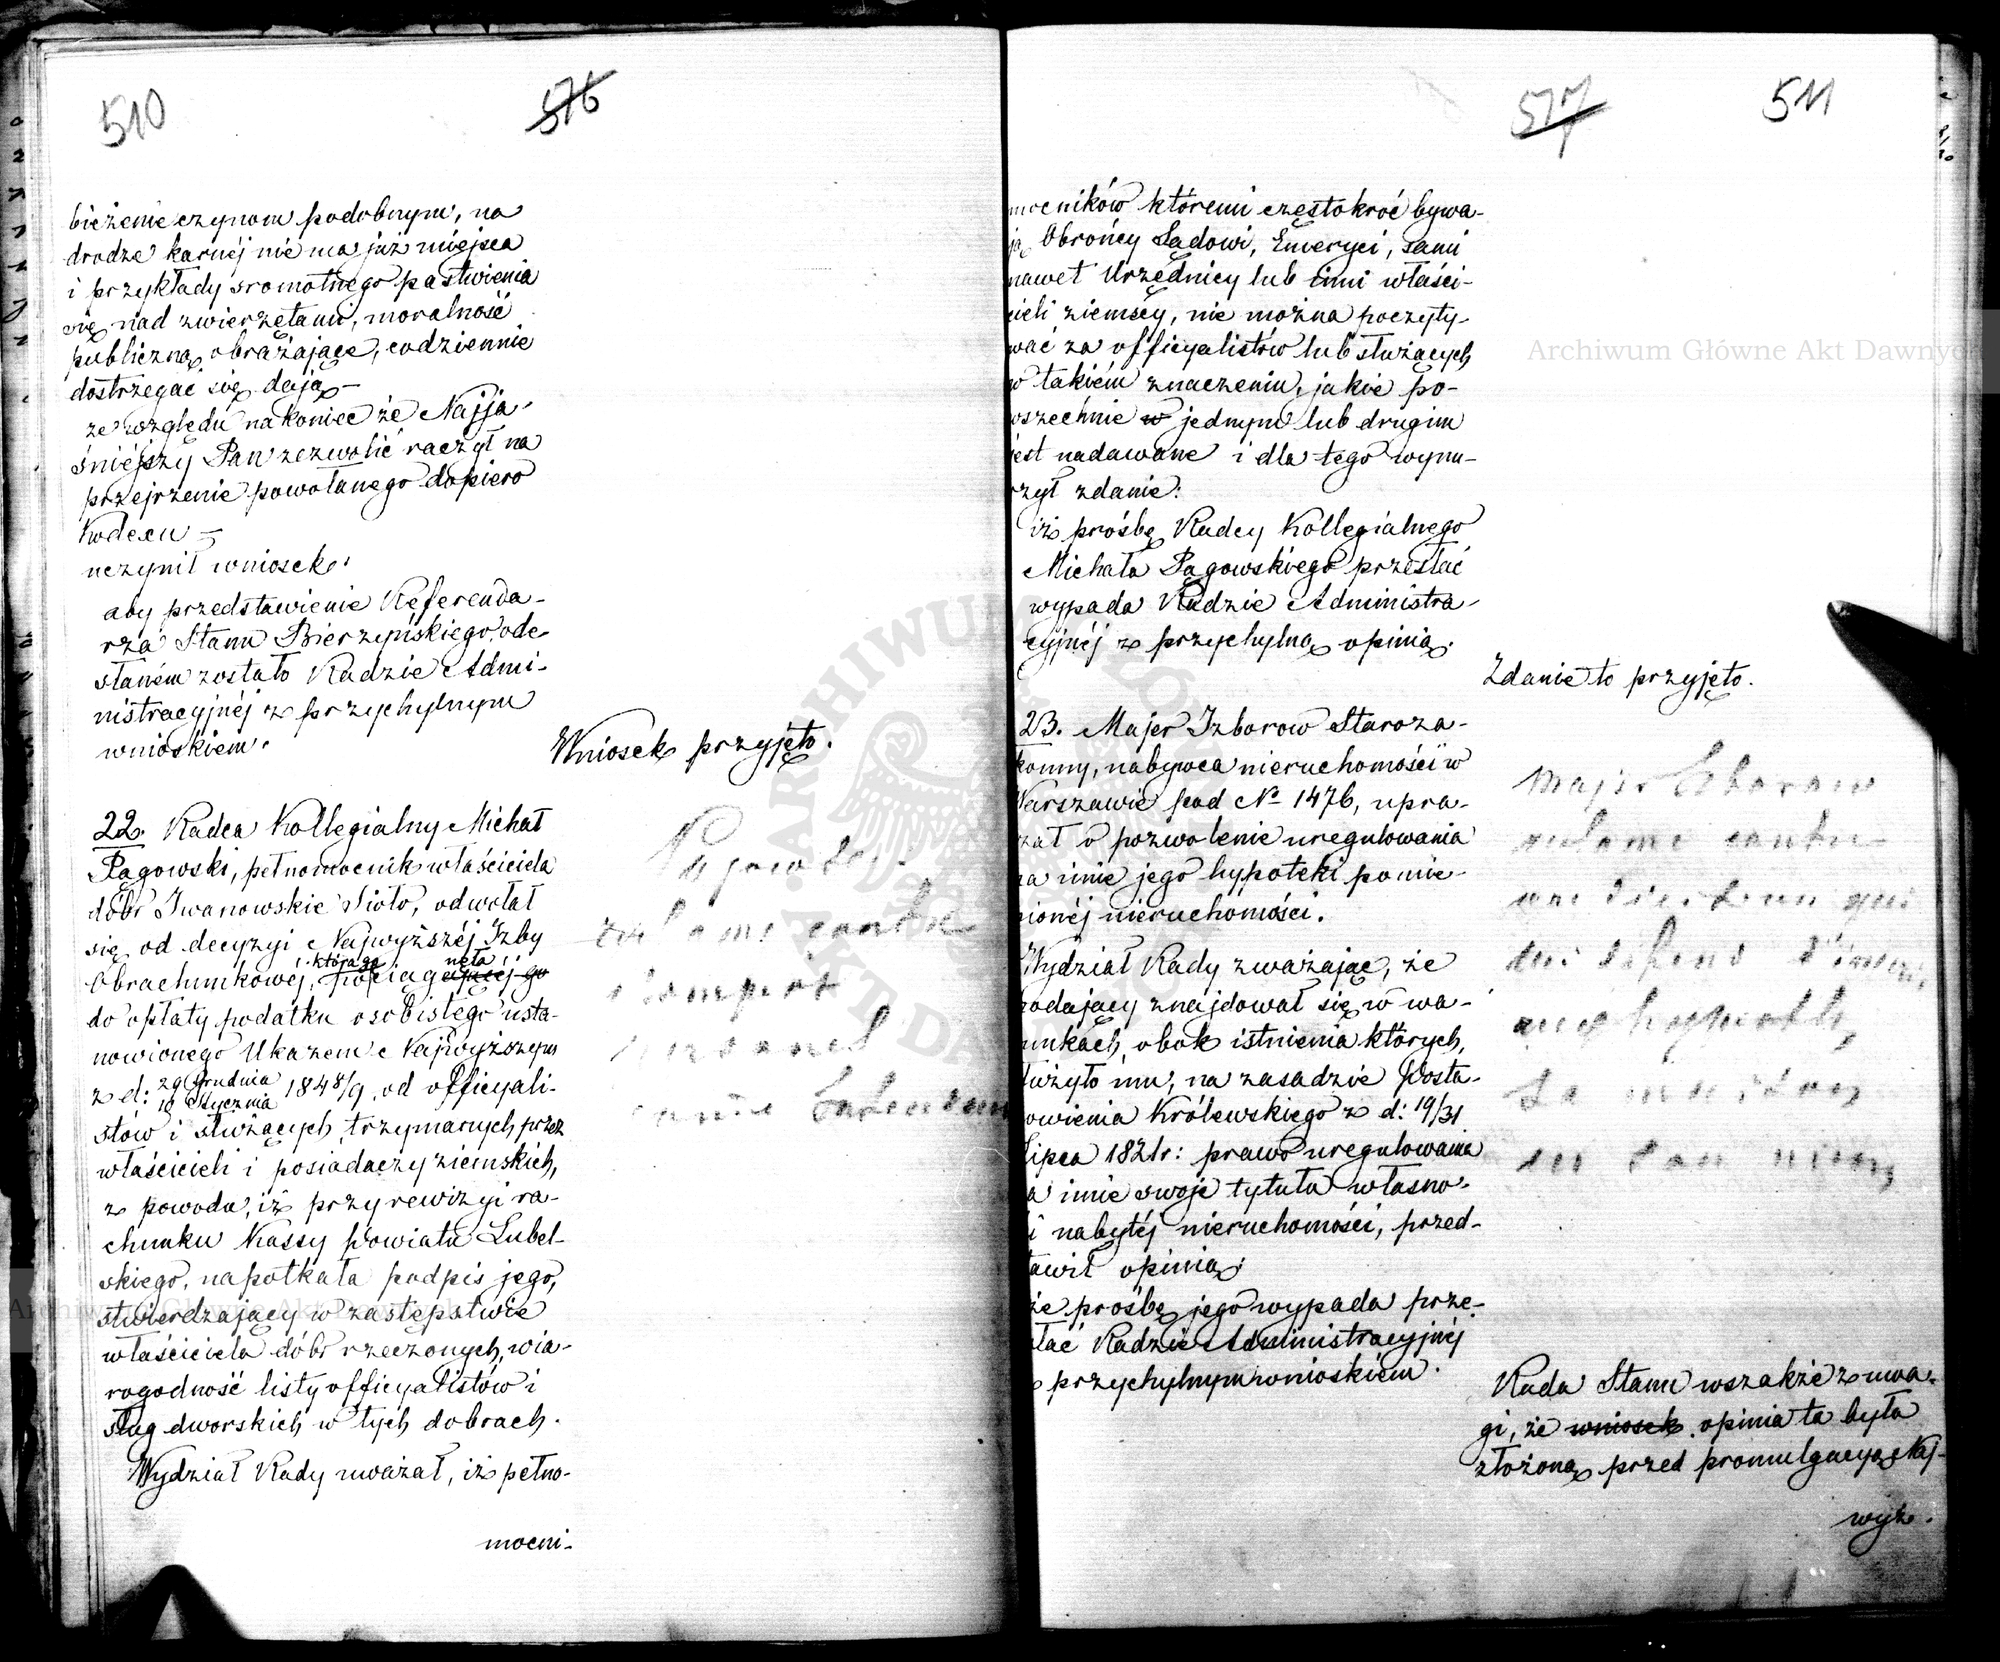 510
576
bieżenie czynom podobnym, na
drodze karnéj nie ma już miejsca
i przykłady sromotnego pastwienia
się nad zwierzętami, moralność
publiczną obrażające, codziennie
dostrzegać się dają –
ze względu nakoniec że Najja-
śniejszy Pan zezwolić raczył na
przejrzenie powołanego dopiero
Kodexu –
uczynił wniosek:
aby przedstawienie Referenda-
rza Stanu Bierzyńskiego ode-
słaném zostało Radzie Admi-
nistracyjnéj z przychylnym
wnioskiem.
Wniosek przyjęto.
22. Radca Kollegialny Michał
Pągowski, pełnomocnik właściciela
dóbr Iwanowskie Sioło, odwołał
się od decyzyi Najwyższéj Izby
Obrachunkowéj, która go pociągnęła
do opłaty podatku osobistego usta-
nowionego Ukazem Najwyższym
z d: 29 Grudnia / 10 Stycznia 1848/9, od officyali-
stów i służących, trzymanych przez
właścicieli i posiadaczy ziemskich,
z powodu, iż przy rewizyi ra-
chunku Kassy Powiatu Lubel-
skiego, napotkała podpis jego,
stwierdzający w zastępstwie
właściciela dóbr rzeczonych, wia-
rogodność listy officyalistów i
sług dworskich w tych dobrach.
Wydział Rady uważał, iż pełno-
mocni-
Pągowski
réclame contre
l'impôt
personel
517
511
mocników któremi częstokroć bywa-
ją Obrońcy Sądowi, Emeryci, sami
nawet Urzędnicy lub inni właści-
ciele ziemscy, nie można poczyty-
wać za officyalistów lub służących
w takiém znaczeniu, jakie po-
wszechnie w jednym lub drugim
jest nadawane i dla tego wynu-
rzył zdanie:
iż prośbę Radcy Kollegialnego
Michała Pągowskiego przesłać
wypada Radzie Administra-
cyjnéj z przychylną opinią.
Zdanie to przyjęto.
23. Majer Izborow Staroza-
konny, nabywca nieruchomości w
Warszawie pod No 1476, upra-
szał o pozwolenie uregulowania
na imie jego hypoteki pomie-
nionéj nieruchomości.
Wydział Rady zważając, że
podający znajdował się w wa-
runkach, obok istnienia których,
służyło mu, na zasadzie Posta-
nowienia Królewskiego z d: 19/31
Lipca 1821 r: prawo uregulowania
na imie swoje tytułu własno-
ści nabytéj nieruchomości, przed-
stawił opinią:
że prośbę jego wypada prze-
słać Radzie Administracyjnéj
z przychylnym wnioskiem.
Majer Izborow
réclame contre
Rada Stanu wszakże z uwa-
gi, że wniosek opinia ta była
złożoną przed promulgacyą Naj-
wyż.
Archiwum Główne Akt Dawnych
ARCHIWUM GŁÓWNE AKT DAWNYCH
Archiwum Główne Akt Dawnych